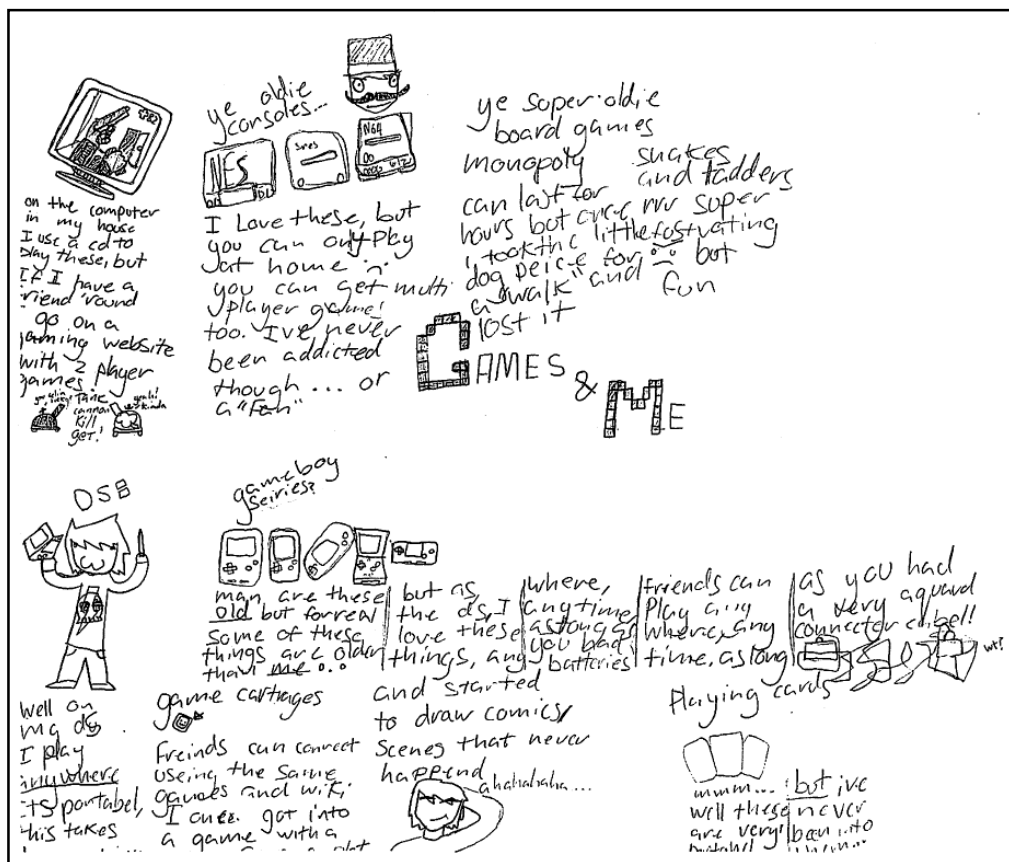 on the computer
in my house
I use a cd to
play these, but
If I have a
friend 'round
I go on a
gaming website
with 2 player
games
Tank
cannon
kill
get!
yeah!
kinda
ye oldie
consoles...
NES
Snes
N64
I Love these, but
you can only Play
at home
you can get multi
player games
too. I've never
been addicted
though ... or
a "fan"
ye super-oldie
board games
monopoly
can last for
hours but once
i took the little
dog peice for
a "walk" and
lost it
snakes
and ladders
rrr super
but
fun
GAMES
& ME
DS
gameboy
seiries?
man are these
old but for real
some of these
things are older
than me...
but as
the ds, I
love these
things, any
where,
anytime
as long as
you had
batteries!
friends can
Play any
where, any
time, as long
as you had
a very aquard
connector cabel!
well on
my ds
I play
anywhere
its portabel,
this takes
game cartrages
Freinds can connect
useing the same
games and wifi
I once got into
a game with a
and started
to draw comics/
scenes that never
happend
ahahahaha...
Playing cards
mmm...
well these
are very
but ive
never
been into
them...